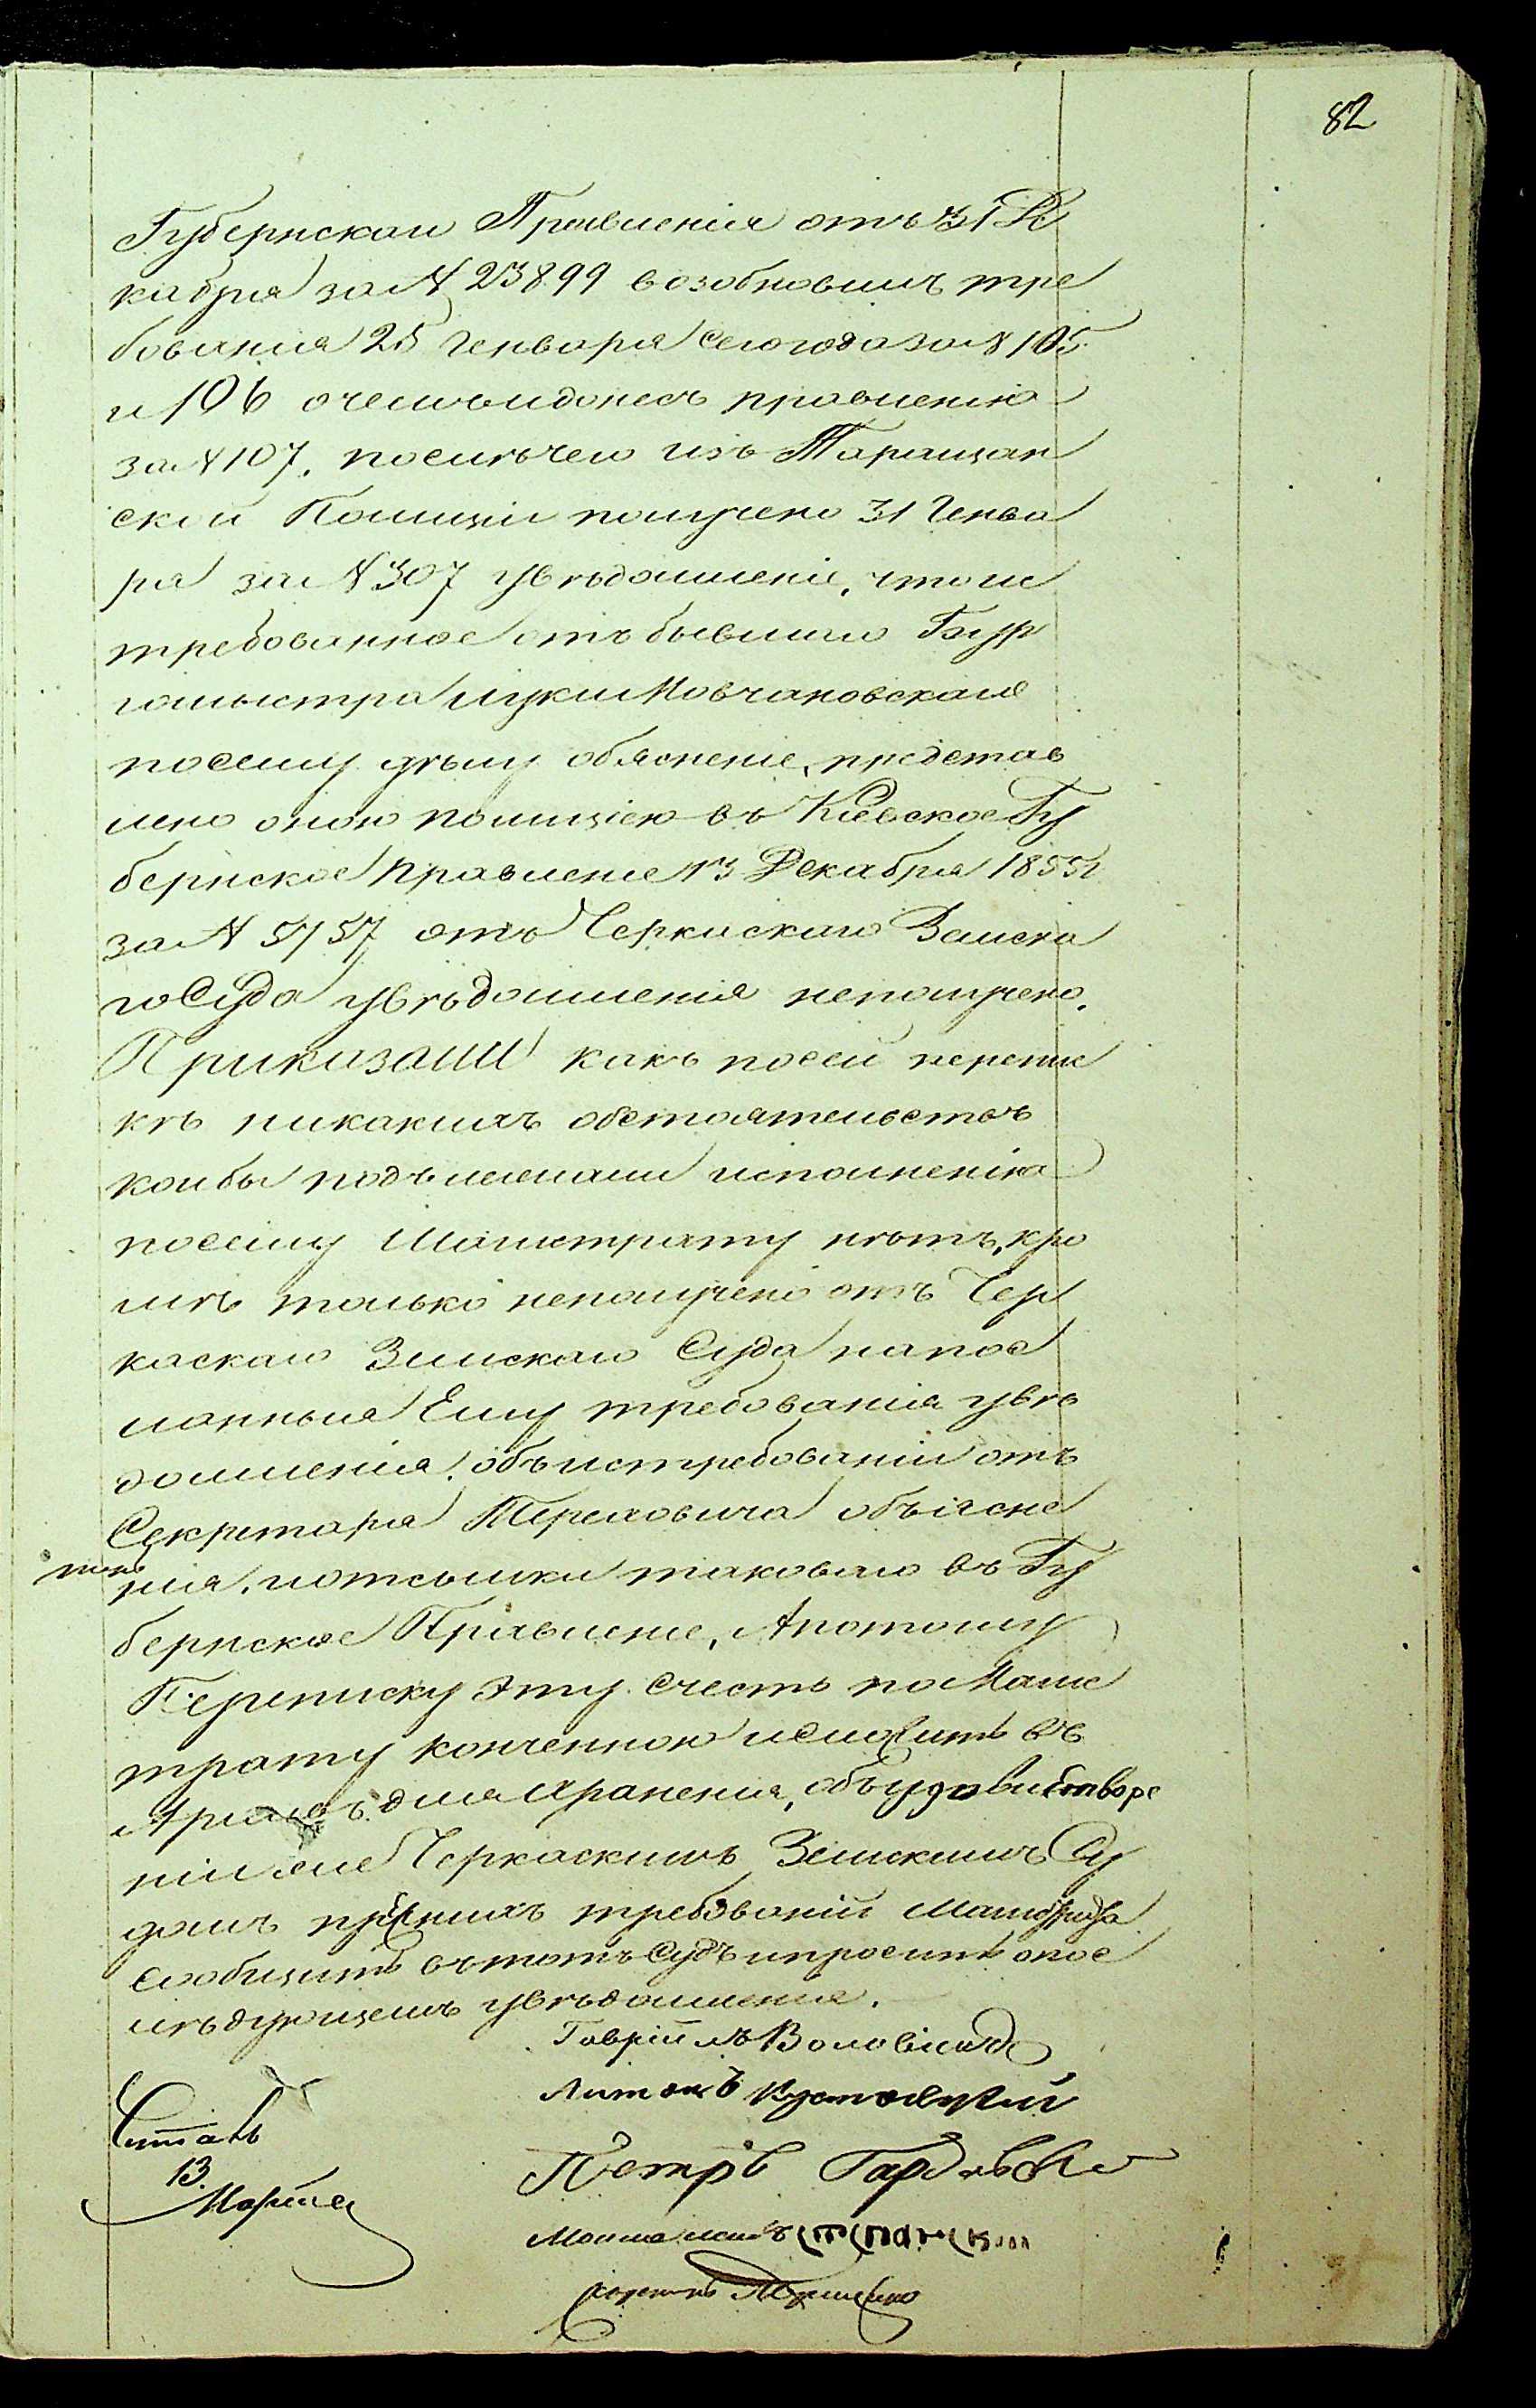 82
Губернскаго Правленія отъ 31 Де
кабря за № 23899 возобновилъ тре
бованія 25 Генваря сего года за № 105
и 106 о чемъ и донесъ правленію
за № 107. после чего изъ Таращан
ской Полиціи получено 31 Генва
ря за № 307 увѣдомленіе, что ис
требованное отъ бывшаго Бур
гомыстра Луки Мовчановскаго
по сему дѣлу обясненіе, представ
лено оною полиціею въ Кіевское Гу
бернское Правленіе 13 Декабря 185
за № 5757 отъ Черкаскаго Земска
го Суда увѣдомленія неполучено.
Приказали какъ по сей перепис
кѣ никакихъ обстоятельствъ
кои бы подълежали исполненію
по сему Магистрату нѣтъ, кро
мѣ только неполучено отъ Чер
каскаго Земскаго Суда на пос
ланныя Ему требованія увѣ
домленія, объ истребованіи отъ
Секретаря объясне
нія, и отсылки таковаго въ Гу
бернское Правленіе, А потому
Переписку эту счесть по Магис
трату конченною и сложить въ
Архивъ для храненія, объ удовлетворе
ніи же Черкаскимъ Земскимъ Су
домъ требованій Магистрата
сообщить въ тотъ Судъ и просить о пос
лѣдующемъ увѣдомленія.
Гавріилъ
Антонъ
Петръ
Читалъ
13.
Марта